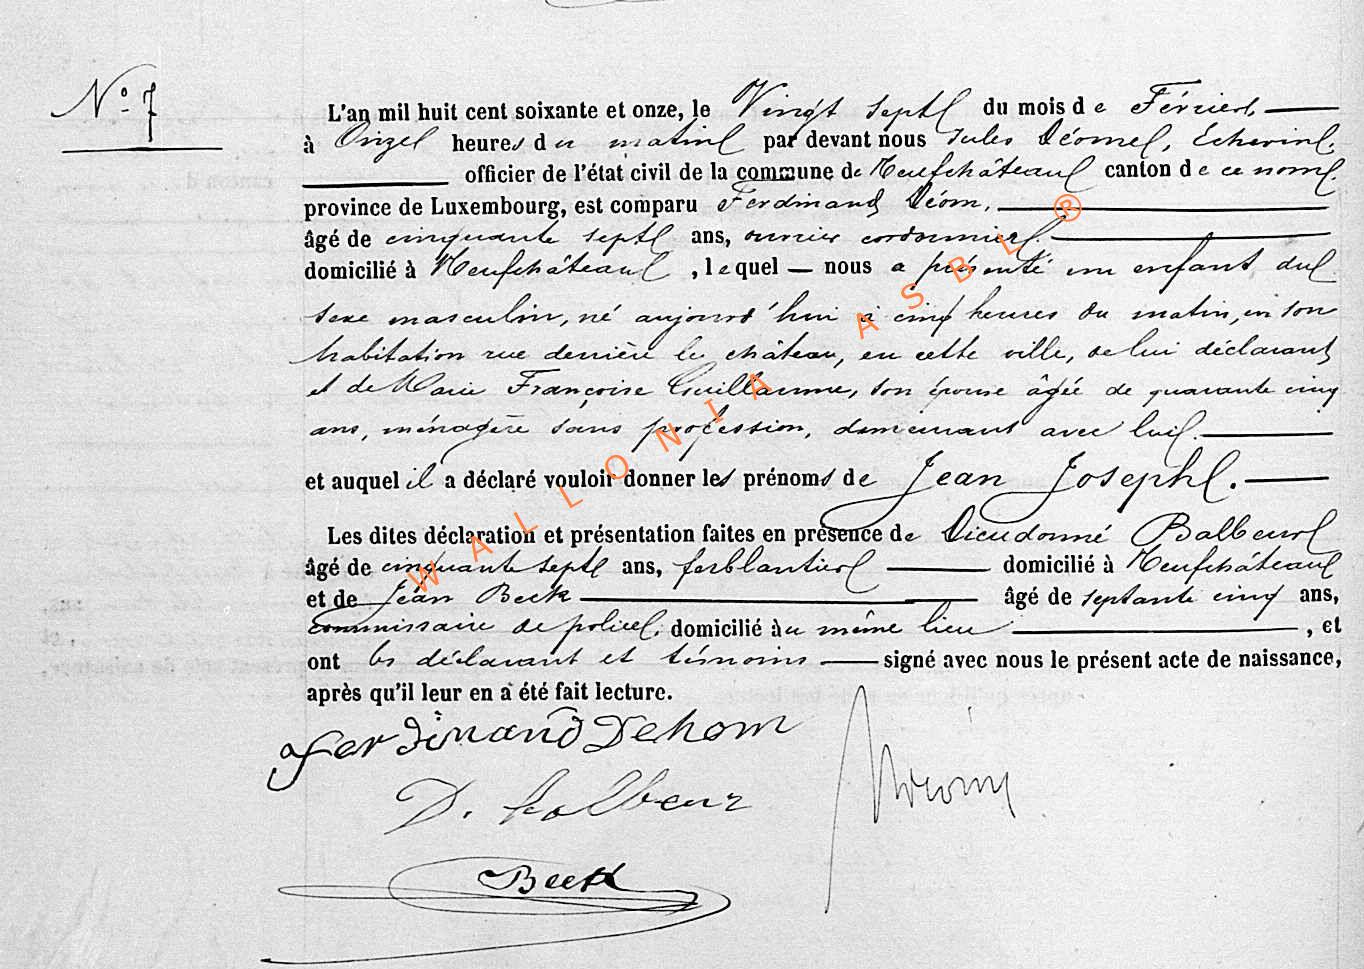 N° 7
L'an mil huit cent soixante et onze, le Vingt sept du mois de Février,
à Onze heures du matin par devant nous Jules Déome, Echevin,
officier de l'état civil de la commune de Neufchâteau canton de ce nom,
province de Luxembourg, est comparu Ferdinand Déom,
âgé de cinquante sept ans, ouvrier cordonnier.
domicilié à Neufchâteau, lequel nous a présenté un enfant du
sexe masculin, né aujourd'hui à cinq heures du matin, en son
habitation rue derrière le château, en cette ville, de lui déclarant
et de Marie Françoise Guillaume, son épouse âgée de quarante cinq
ans, ménagère sans profession, demeurant avec lui.
et auquel il a déclaré vouloir donner les prénoms de Jean Joseph.
Les dites déclaration et présentation faites en présence de Dieudonné Balbeur
âgé de cinquante sept ans, ferblantier domicilié à Neufchâteau
et de Jean Beck âgé de septante cinq ans,
commissaire de police, domicilié au même lieu, et
ont les déclarant et témoins signé avec nous le présent acte de naissance,
après qu'il leur en a été fait lecture.
Ferdinand Dehom
D. Balbeur
Beck
WALLONIA ASBL ®